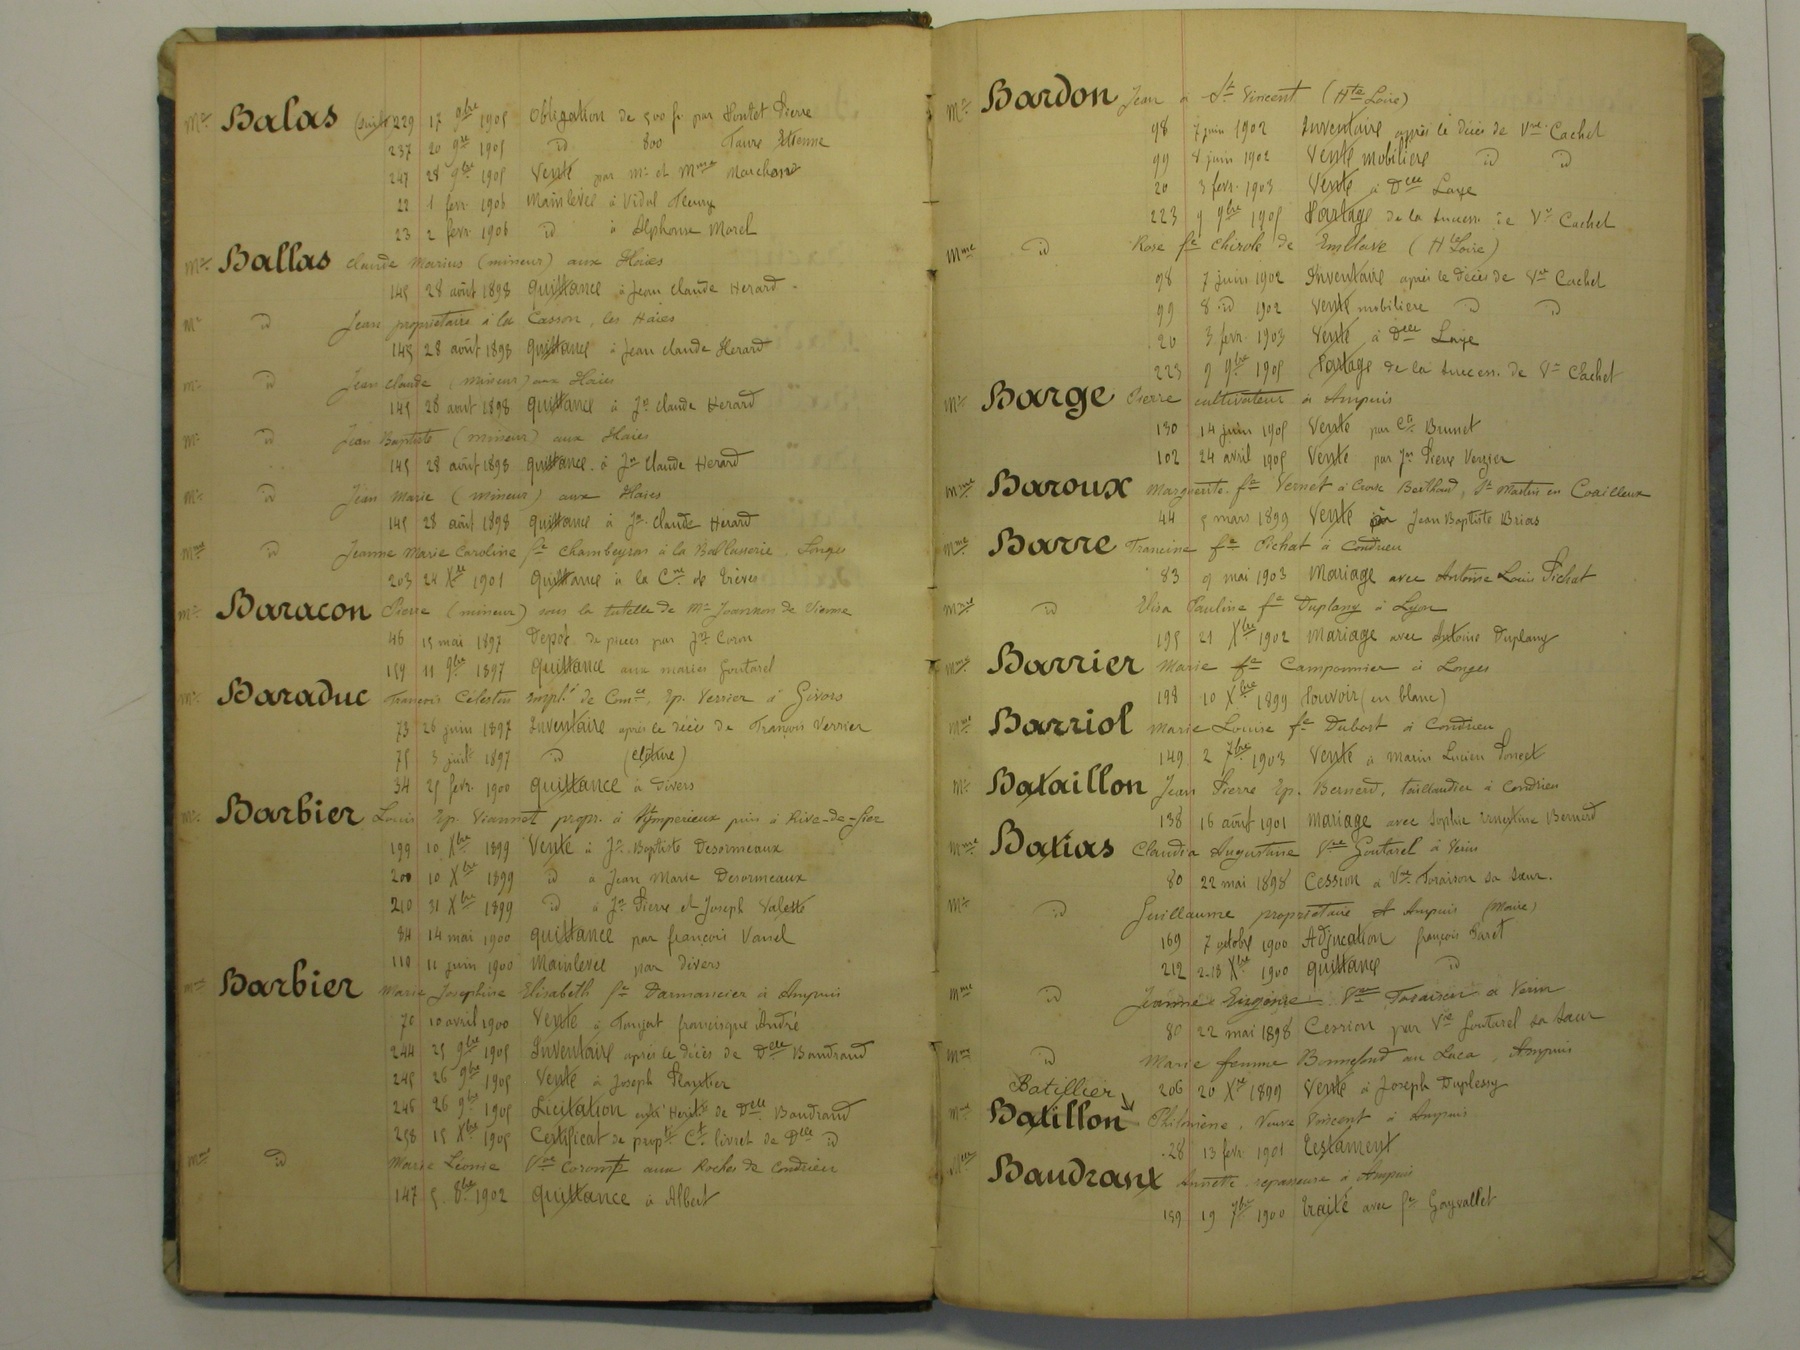 Mr Balas (suite) 229 17 9bre 1905 Obligation de 500 fr. par Pontet Pierre
237 20 9bre 1905 id 800 Faure Etienne
247 28 9bre 1905 Vente par Mr et Mme Marchand
22 1 fevr. 1906 Mainlevée à Vidal Fleury
23 2 fevr. 1906 id à Alphonse Morel
Mr Ballas Claude Marius (mineur) aux Haies
145 28 août 1898 Quittance à Jean Claude Herard
Mr id Jean propriétaire à la Casson, les Haies
145 28 août 1898 Quittance à Jean Claude Herard
Mr id Jean Claude (mineur) aux Haies
145 28 août 1898 Quittance à Jn Claude Herard
Mr id Jean Baptiste (mineur) aux Haies
145 28 août 1898 Quittance à Jn Claude Herard
Mr id Jean Marie (mineur) aux Haies
145 28 août 1898 Quittance à Jn Claude Herard
Mme id Jeanne Marie Caroline fe Chambeyron à la Ballasserie, Longes
203 24 Xbre 1901 Quittance à la Cne de Trèves
Mr Baracon Pierre (mineur) sous la tutelle de Mr Joannon de Vienne
46 15 mai 1897 Depôt de pieces par Jn Coron
159 11 9bre 1897 Quittance aux mariés Goutarel
Mr Baraduc François Célestin empl. de Comce, Ep. Verrier à Givors
73 26 juin 1897 Inventaire après le décès de François Verrier
75 3 juilt 1897 id (clôture)
34 25 fevr. 1900 Quittance à divers
Mr Barbier Louis Ep. Viannet propr. à puis à Rive-de-Gier
199 10 Xbre 1899 Vente à Jn Baptiste Desormeaux
200 10 Xbre 1899 id à Jean Marie Desormeaux
210 31 Xbre 1899 id à Jn Pierre et Joseph Valette
84 14 mai 1900 Quittance par françois Vanel
110 11 juin 1900 Mainlevée par divers
Mme Barbier Marie Josephine Elisabeth fe Darmancier à Ampuis
70 10 avril 1900 Vente à francisque André
244 25 9bre 1905 Inventaire après le décès de Delle Baudrand
245 26 9bre 1905 Vente à Joseph Plantier
246 26 9bre 1905 Licitation de Delle Baudrand
258 15 Xbre 1905 Certificat de propté Ct livret de Delle id
Mme id Marie Léonie Vve Coromp aux Roches de Condrieu
147 5 8bre 1902 Quittance à Albert
Mr Bardon Jean à St Vincent (Hte Loire)
98 7 juin 1902 Inventaire après le décès de Vve Cachet
99 8 juin 1902 Vente mobilière id id
20 3 fevr. 1903 Vente à Delle Laye
223 9 9bre 1905 Partage de la success. de Ve Cachet
Mme id Rose fe Chirol de Emblave (Hte Loire)
98 7 juin 1902 Inventaire après le décès de Vve Cachet
99 8 id 1902 Vente mobilière id id
20 3 fevr. 1903 Vente à Delle Laye
223 9 9bre 1905 Partage de la success. de Ve Cachet
Mr Barge Pierre cultivateur à Ampuis
130 14 juin 1905 Vente par Brunet
102 24 avril 1905 Vente par Jn Pierre Verzier
Mme Baroux Marguerite fe Vernet à Croix Berthoud, St Martin en Coailleux
44 5 mars 1899 Vente Jean Baptiste Brias
Mme Barre Francine fe Pichat à Condrieu
83 9 mai 1903 Mariage avec Antoine Louis Pichat
Mme id Elisa Pauline fe Duplany à Lyon
195 21 Xbre 1902 Mariage avec Antoine Duplany
Mme Barrier Marie fe Camponnier à Longes
198 10 Xbre 1899 Pouvoir (en blanc)
Mme Barriol Marie Louise fe Dubost à Condrieu
149 2 7bre 1903 Vente à Marin Lucien Poncet
Mr Bataillon Jean Pierre Ep. Bernard, taillandier à Condrieu
138 16 août 1901 Mariage avec Sophie Ernestine Bernard
Mme Batias Claudia Augustine Vve Goutarel à Verin
80 22 mai 1898 Cession à Vve Foraison sa sœur.
Mr id Guillaume propriétaire à Ampuis (Maire)
169 7 octobre 1900 Adjucation françois Paret
212 Xbre 1900 Quittance id
Mme id Jeanne Eugénie Vve Foraison à Verin
80 22 mai 1898 Cession par Vve Goutarel sa sœur
Mme id Marie femme Bonnefond au Luca, Ampuis
Batillier 206 20 Xbre 1899 Vente à Joseph Duplessy
Mme Batillon Philomène, Veuve Vincent à Ampuis
28 13 fevr. 1901 Testament
Mlle Baudranx Annette repasseuse à Ampuis
159 19 7bre 1900 Traité avec fe Gayvallet